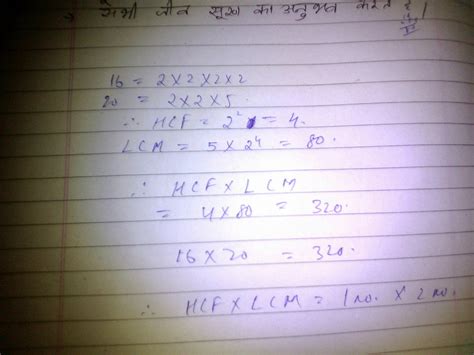 सभी जीव सुख का अनुभव करते है।
16 = 2×2×2×2
20 = 2×2×5
∴ HCF = 2² = 4.
LCM = 5×2⁴ = 80.
∴ HCF × LCM
= 4×80 = 320.
16×20 = 320.
∴ HCF × LCM = 1 no. × 2 no.